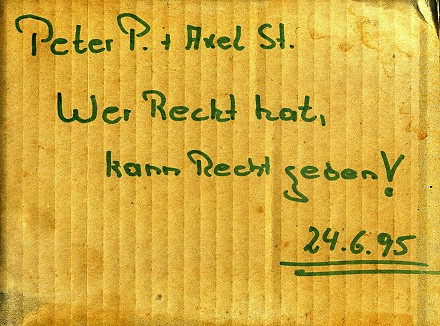 Peter P. + Axel St.
Wer Recht hat,
kann Recht geben!
24.6.95